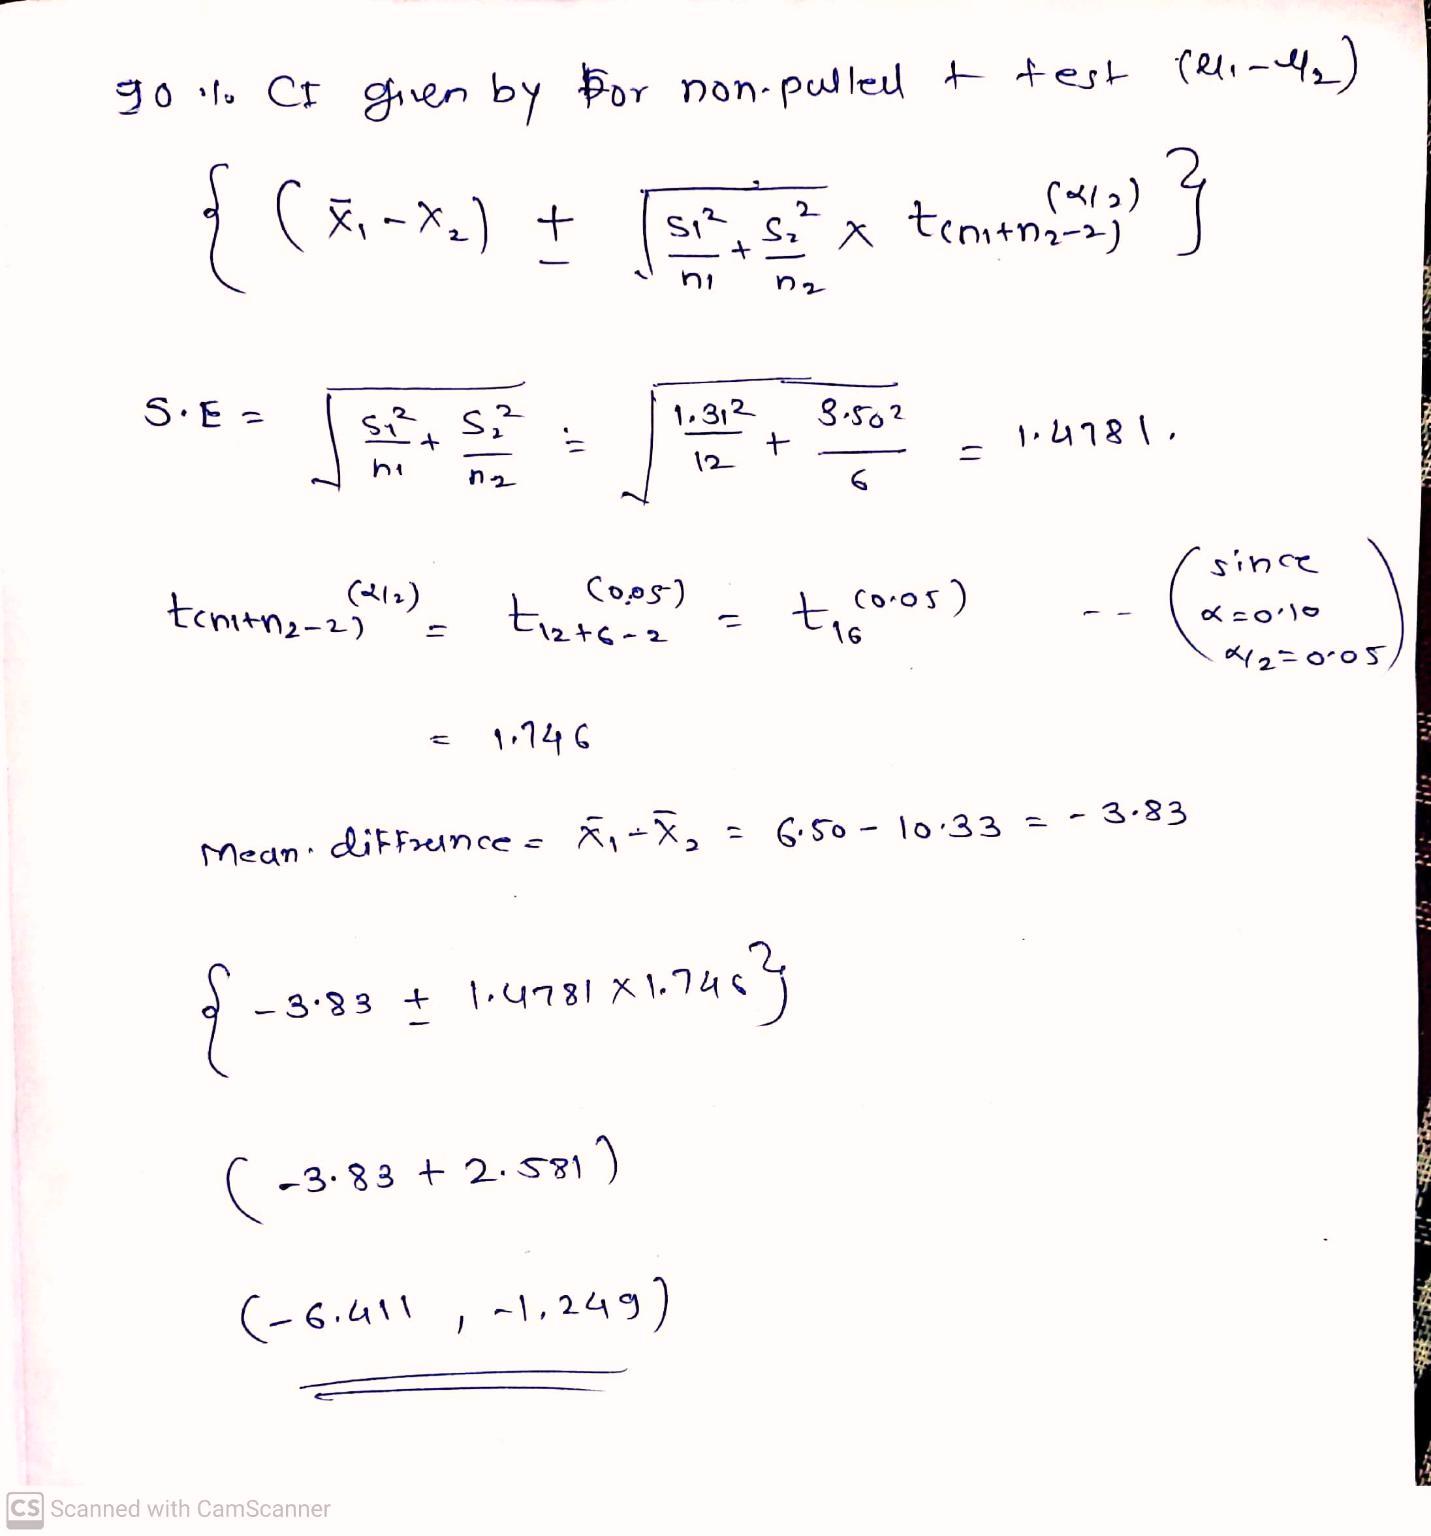 90 % CI given by for non-pulled t test (μ₁-μ₂)
{ ( x̄₁ - x₂ ) ± √(s₁²/n₁ + s₂²/n₂) × t(n₁+n₂-2)^(α/2) }
S.E = √(s₁²/n₁ + s₂²/n₂) = √(1.31²/12 + 3.50²/6) = 1.4781.
t(n₁+n₂-2)^(α/2) = t₁₂₊₆₋₂^(0.05) = t₁₆^(0.05) -- (since α=0.10 α/2=0.05)
= 1.746
Mean. diffrence = x̄₁-x̄₂ = 6.50 - 10.33 = -3.83
{ -3.83 ± 1.4781 × 1.746 }
( -3.83 + 2.581 )
(-6.411 , -1.249)
CS Scanned with CamScanner